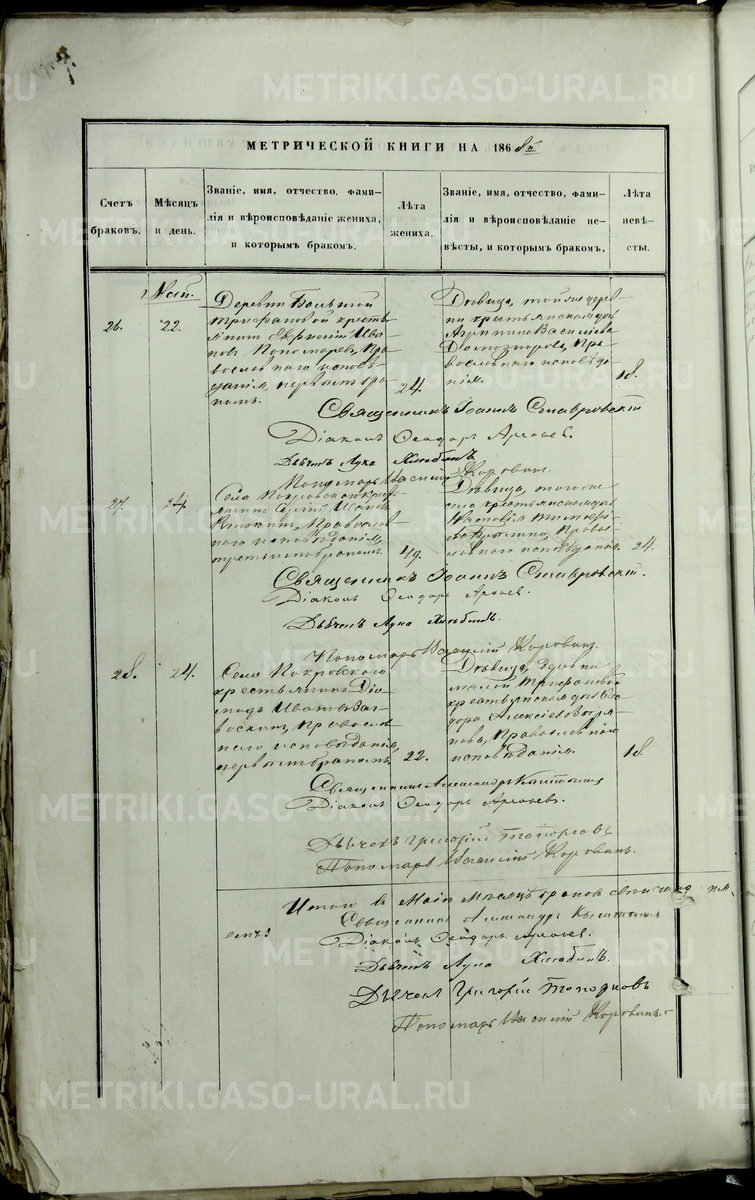 METRIKI.GASO-URAL.RU
МЕТРИЧЕСКОЙ КНИГИ НА 1868й
Счетъ браковъ.
Мѣсяцъ и день.
Званіе, имя, отчество, фами-
лія и вѣроисповѣданіе жениха,
и которымъ бракомъ.
Лѣта жениха.
Званіе, имя, отчество, фами-
лія и вѣроисповѣданіе не-
вѣсты, и которымъ бракомъ,
Лѣта невѣ-
сты.
Маій.
26.
22.
Деревни Большой
Трифановой кресть
янинъ Ива-
новъ Пономаревъ, Пра
вославнаго исповѣ-
данія, первымъ бра
комъ.
24.
Дѣвица, той же дерев
ни крестьянская дочь
Агрипина Василіева
Пра-
вославнаго исповѣда-
нія.
18.
Священникъ Іоаннъ Ставровскій
Діаконъ Ѳеодоръ
Дьячекъ Лука Хлюбинъ
Пономарь Василій Коровинъ.
27.
24.
Села Покровскаго крес
янинъ Сергій Ивановъ
Православ
наго исповѣданія,
третьимъ бракомъ.
49.
Дѣвица, того же
села крестьянская дочь
Право-
славнаго исповѣданія.
24.
Священникъ Іоаннъ Ставровскій.
Діаконъ Ѳеодоръ
Дьячекъ Лука Хлюбинъ.
Пономарь Василій Коровинъ.
28.
24.
Села Покровскаго
крестьянинъ Діо
мидъ Ивановъ
Правосла
наго исповѣданія,
первымъ бракомъ.
22.
Дѣвица, деревни
малой Трифановой
крестьянская дочь Ѳео
дора Алексіева
Православнаго
исповѣданія.
18.
Священникъ Александръ
Діаконъ Ѳеодоръ
Дьячекъ Григорій Топорковъ
Пономарь Василій Коровинъ.
Итого въ Маіѣ Мѣсяцѣ браковъ
Священникъ Александръ
Діаконъ Ѳеодоръ
Дьячекъ Лука Хлюбинъ.
Дьячекъ Григорій Топорковъ
Пономарь Василій Коровинъ.